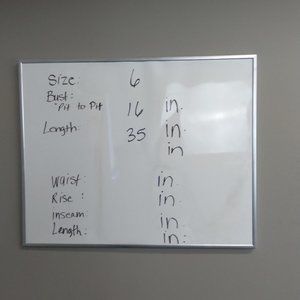 Size: 6
Bust:
"Pit to Pit 16 in.
Length: 35 in.
in
Waist: in.
Rise: in.
inseam in.
Length: in: